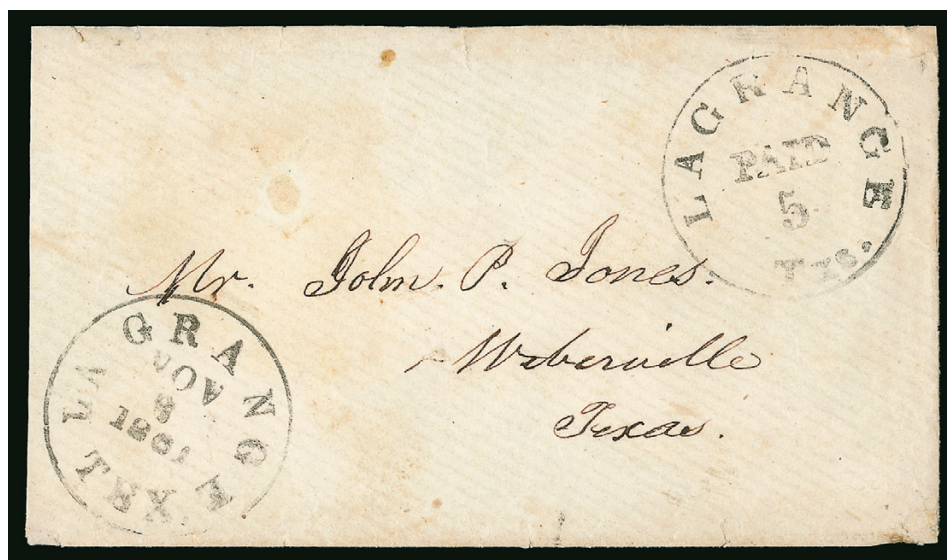 LAGRANGE
PAID
5
Txs.
Mr. John. P. Jones.
Weberville
Texas.
LA GRANGE
NOV
8
1861
TEX.